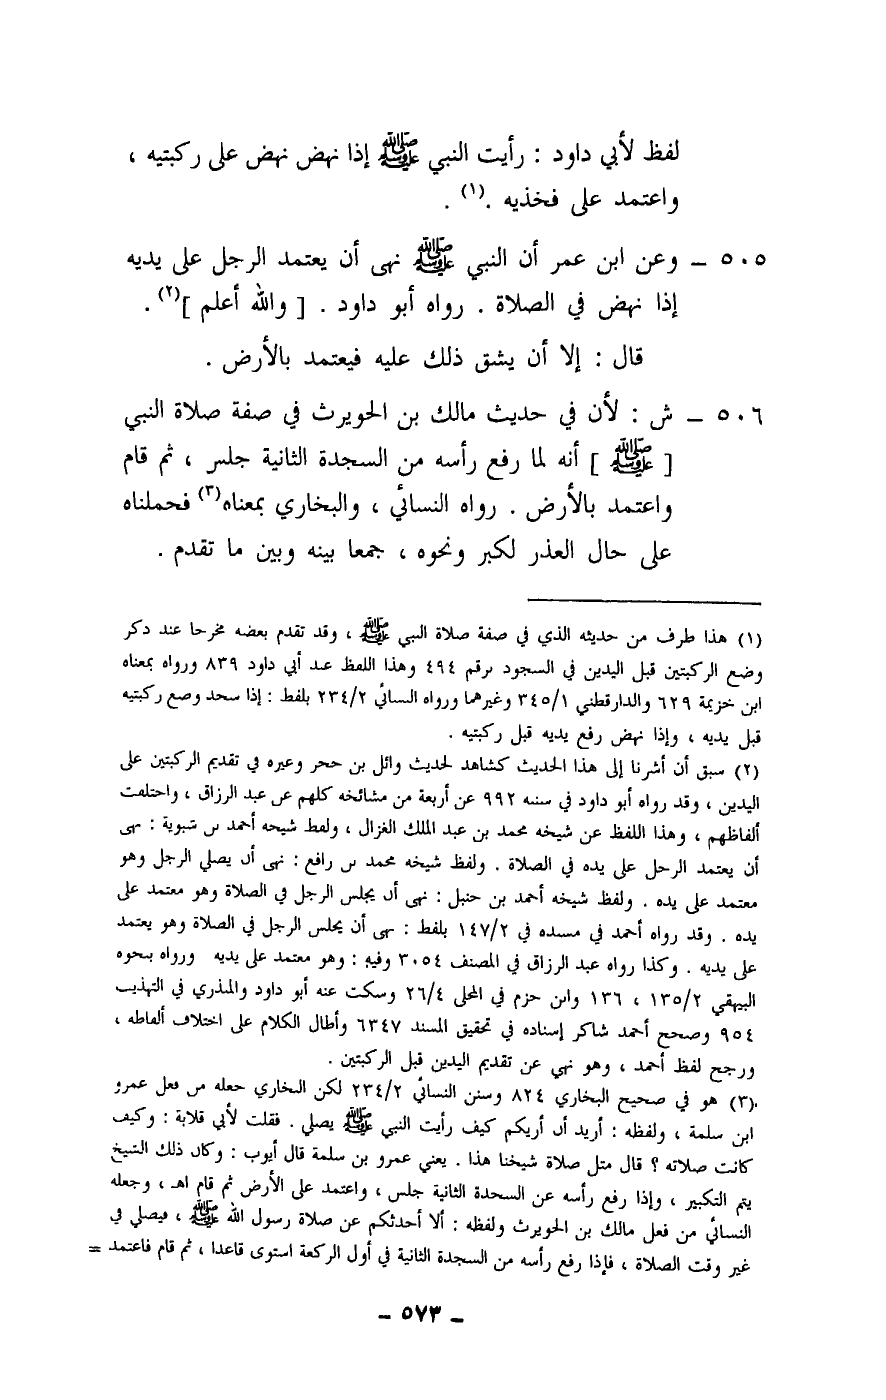 لفظ لأبي داود : رأيت النبي ﷺ إذا نهض نهض على ركبتيه ،
واعتمد على فخذيه .(١) .
٥٠٥ ـ وعن ابن عمر أن النبي ﷺ نهى أن يعتمد الرجل على يديه
إذا نهض في الصلاة . رواه أبو داود . [ والله أعلم ](٢) .
قال : إلا أن يشق ذلك عليه فيعتمد بالأرض .
٥٠٦ ـ ش : لأن في حديث مالك بن الحويرث في صفة صلاة النبي
[ ﷺ ] أنه لما رفع رأسه من السجدة الثانية جلس ، ثم قام
واعتمد بالأرض . رواه النسائي ، والبخاري بمعناه(٣) فحملناه
على حال العذر لكبر ونحوه ، جمعا بينه وبين ما تقدم .
(١) هذا طرف من حديثه الذي في صفة صلاة النبي ﷺ ، وقد تقدم بعضه مخرحا عند دكر
وضع الركبتين قبل اليدين في السجود برقم ٤٩٤ وهذا اللفظ عند أبي داود ٨٣٩ ورواه بمعناه
ابن خزيمة ٦٢٩ والدارقطني ٣٤٥/١ وغيرهما ورواه النسائي ٢٣٤/٢ بلفط : إذا سحد وصع ركبتيه
قبل يديه ، وإذا نهض رفع يديه قبل ركبتيه .
(٢) سبق أن أشرنا إلى هذا الحديث كشاهد لحديث وائل بن ححر وعيره في تقديم الركبتين على
اليدين ، وقد رواه أبو داود في سننه ٩٩٢ عن أربعة من مشائخه كلهم عن عبد الرزاق ، واحتلفت
ألفاظهم ، وهذا اللفظ عن شيخه محمد بن عبد الملك الغزال ، ولفط شيحه أحمد بن شبوية : نهى
أن يعتمد الرحل على يده في الصلاة . ولفظ شيخه محمد بن رافع : نهى أن يصلي الرجل وهو
معتمد على يده . ولفظ شيخه أحمد بن حنبل : نهى أن يجلس الرجل في الصلاة وهو معتمد على
يده . وقد رواه أحمد في مسنده في ١٤٧/٢ بلفط : نهى أن يحلس الرجل في الصلاة وهو يعتمد
على يديه . وكذا رواه عبد الرزاق في المصنف ٣٠٥٤ وفيه : وهو معتمد على يديه ورواه بنحوه
البيهقي ١٣٥/٢ ، ١٣٦ وابن حزم في المحلى ٢٦/٤ وسكت عنه أبو داود والمنذري في التهذيب
٩٥٤ وصحح أحمد شاكر إسناده في تحقيق المسند ٦٣٤٧ وأطال الكلام على اختلاف ألفاطه ،
ورجح لفظ أحمد ، وهو نهي عن تقديم اليدين قبل الركبتين .
(٣) هو في صحيح البخاري ٨٢٤ وسنن النسائي ٢٣٤/٢ لكن البخاري حعله من فعل عمرو
ابن سلمة ، ولفظه : أريد أن أريكم كيف رأيت النبي ﷺ يصلي . فقلت لأبي قلابة : وكيف
كانت صلاته ؟ قال متل صلاة شيخنا هذا . يعني عمرو بن سلمة قال أيوب : وكان ذلك الشيخ
يتم التكبير ، وإذا رفع رأسه عن السحدة الثانية جلس ، واعتمد على الأرض ثم قام اهـ ، وجعله
النسائي من فعل مالك بن الحويرث ولفظه : ألا أحدثكم عن صلاة رسول الله ﷺ ، فيصلي في
غير وقت الصلاة ، فإذا رفع رأسه من السجدة الثانية في أول الركعة استوى قاعدا ، ثم قام فاعتمد =
ـ ٥٧٣ ـ